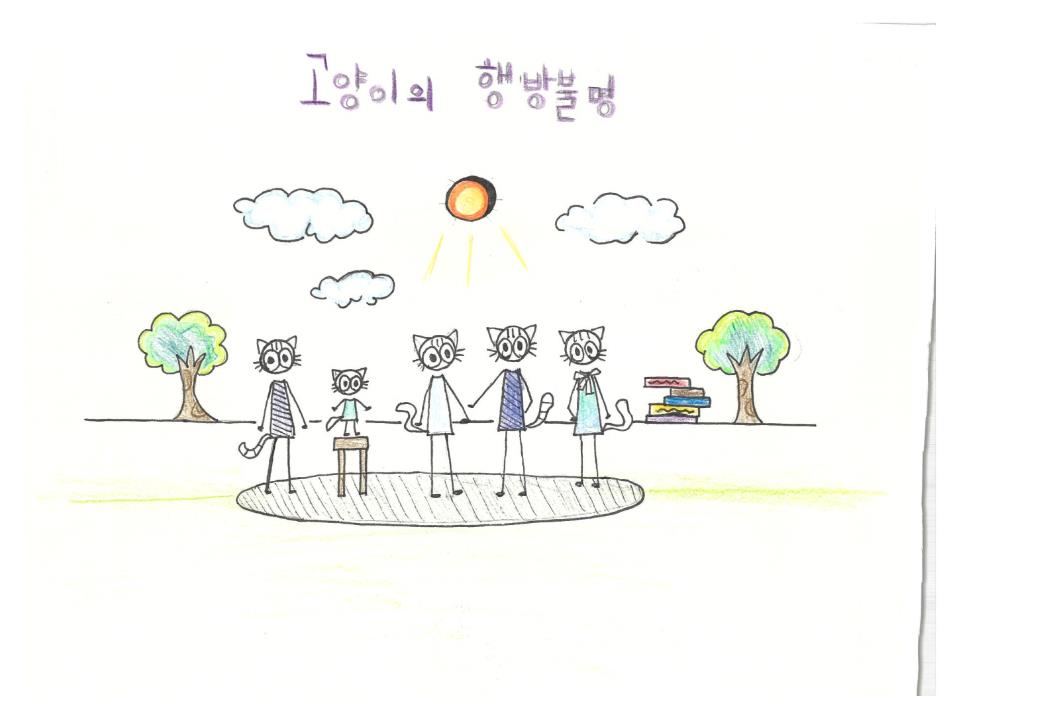 고양이의 행방불명